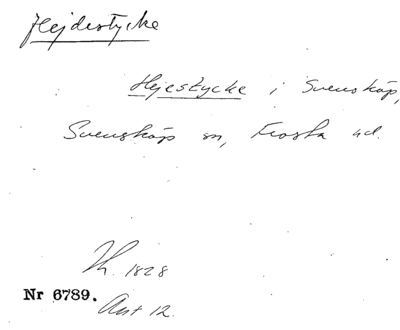 Hejdestycke
Hejestycke i Svensköp,
Svensköp sn, Frosta hd.
Th. 1828
Nr 6789.
Avt 12.